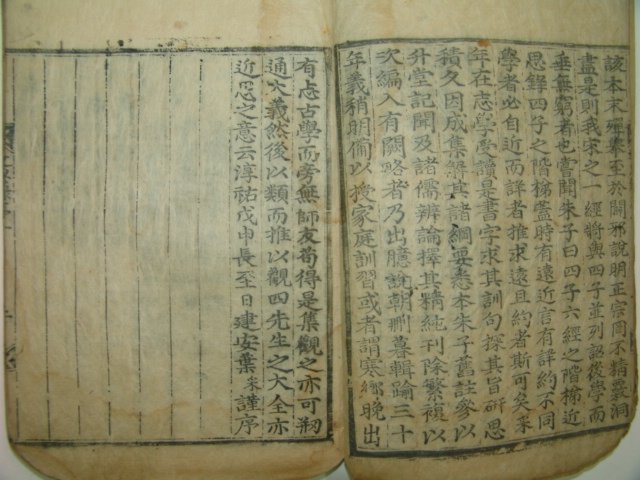 該本末殫舉至於闢邪說明正宗罔不精覈洞
盡是則我宋之一經將與四子並列詔後學而
垂無窮者也嘗聞朱子曰四子六經之階梯近
思錄四子之階梯蓋時有遠近言有詳約不同
學者必自近而詳者推求遠且約者斯可矣采
年在志學受讀是書字求其訓句探其旨研思
積久因成集解其諸綱要悉本朱子舊註參以
升堂記聞及諸儒辨論擇其精純刊除繁複以
次編入有闕略者乃出臆說朝刪暮輯踰三十
年義稍明備以授家庭訓習或者謂寒鄉晚出
有志古學而旁無師友苟得是集觀之亦可粗
通大義然後以類而推以觀四先生之大全亦
近思之意云淳祐戊申長至日建安葉采謹序